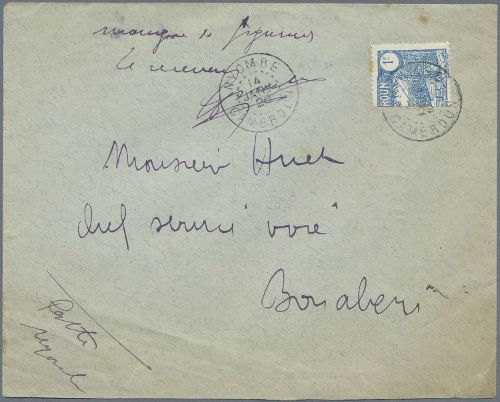 manque de figurines
le receveur
NYOMBE
14
JANV
26
CAMEROUN
1F
ROUN
CAMEROUN
Monsieur Huet
chef service voie
Bonaberi